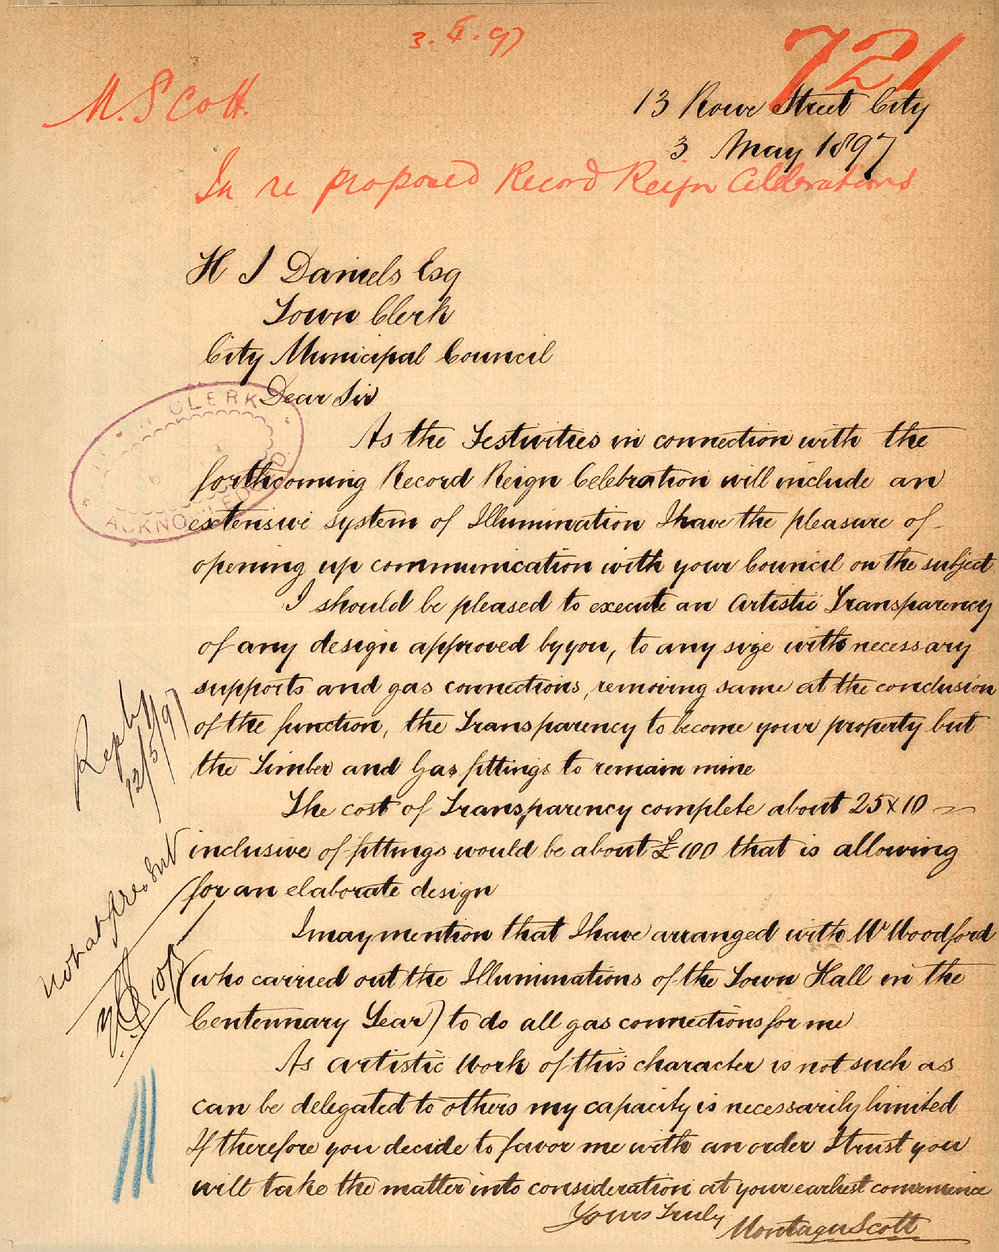 3.5.97
721
M. Scott.
13 Rowe Street City
3 May 1897
In re proposed Record Reign Celebrations
H J Daniels Esq
Town Clerk
City Municipal Council
Dear Sir
TOWN CLERK
ACKNOWLEDGED.
As the Festivities in connection with the
forthcoming Record Reign Celebration will include an
extensive system of Illumination I have the pleasure of
opening up communication with your Council on the subject
I should be pleased to execute an Artistic Transparency
of any design approved by you, to any size with necessary
supports and gas connections, removing same at the conclusion
of the function, the Transparency to become your property but
the Timber and Gas fittings to remain mine
The cost of Transparency complete about 25 x 10
inclusive of fittings would be about £100 that is allowing
for an elaborate design
I may mention that I have arranged with Mr Woodford
(who carried out the Illuminations of the Town Hall in the
Centennary Year) to do all gas connections for me
As artistic work of this character is not such as
can be delegated to others my capacity is necessarily limited
If therefore you decide to favor me with an order I trust you
will take the matter into consideration at your earliest convenience
Yours Truly
Montagu Scott
Reply
12/5/97
Not at present